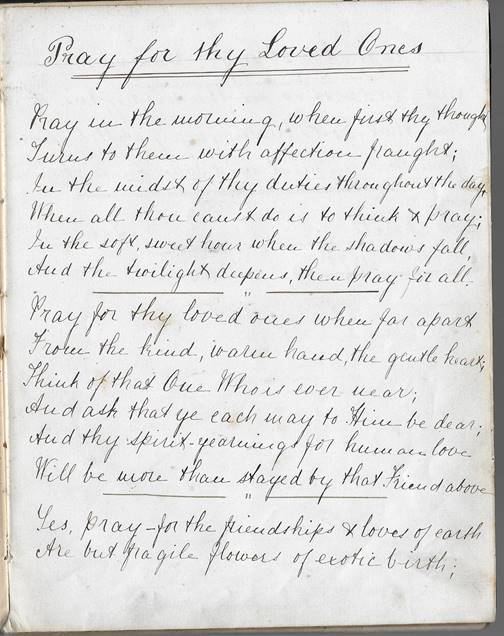 Pray for thy Loved Ones
Pray in the morning, when first thy thought
Turns to them with affection fraught;
In the midst of thy duties throughout the day,
When all thou canst do is to think & pray;
In the soft, sweet hour when the shadows fall,
And the twilight deepens, then pray for all.
"
Pray for thy loved ones when far apart
From the kind, warm hand, the gentle heart;
Think of that One Who is ever near;
And ask that ye each may to Him be dear;
And thy spirit-yearnings for human love
Will be more than stayed by that Friend above
"
Yes, pray-for the friendships & loves of earth
Are but fragile flowers of exotic birth;